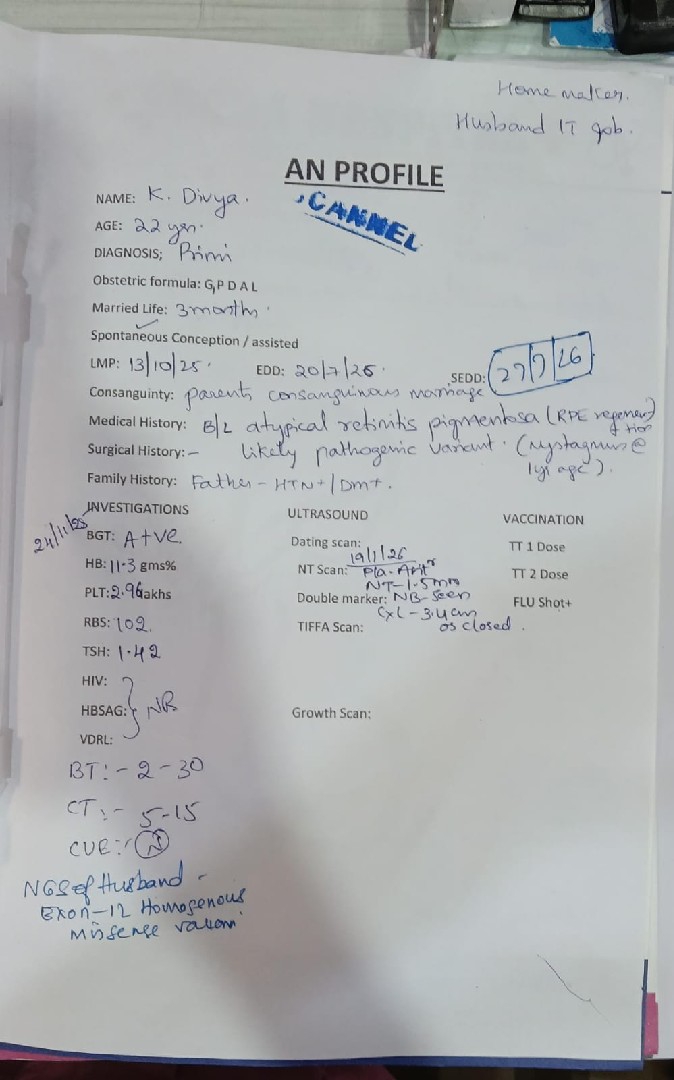 Home maker.
Husband IT job.
AN PROFILE
CANNEL
NAME: K. Divya.
AGE: 22 yrs.
DIAGNOSIS; Primi
Obstetric formula: G,P D A L
Married Life: 3 months
Spontaneous Conception / assisted
LMP: 13/10/25 EDD: 20/7/26 SEDD: 27/7/26
Consanguinty: parents consanguinous marriage
Medical History: B/L atypical retinitis pigmentosa (RPE
Surgical History: - likely pathogenic variant. (nystagmus @
1yr age).
Family History: Father - HTN+/DM+.
24/11/25
INVESTIGATIONS ULTRASOUND VACCINATION
BGT: A+ve Dating scan: TT 1 Dose
HB: 11.3 gms% NT Scan: 19/1/26 TT 2 Dose
Pla-Ant
NT-1.5mm
PLT: 2.96 lakhs Double marker: NB-Seen FLU Shot+
CxL-3.4cm
os closed.
RBS: 102 TIFFA Scan:
TSH: 1.42
HIV:
HBSAG: NR Growth Scan:
VDRL:
BT:- 2-30
CT:- 5-15
CUE:- N
NGS of Husband -
Exon-12 Homogenous
Missense